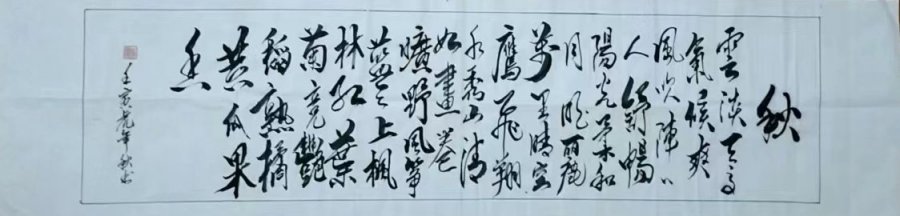 秋
雲淡天高
氣候爽
風吹陣〃
人舒暢
陽光柔和
月麗
萬里晴空
鷹飛翔
水秀山清
如畫卷
曠野風箏
藍天上楓
林紅葉
菊竞艷
稻熟橘
黄瓜果
香
壬寅虎年秋书